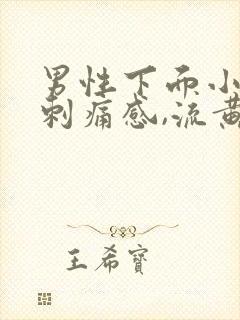 男性下而小
刺痛感,流黄
王希寶